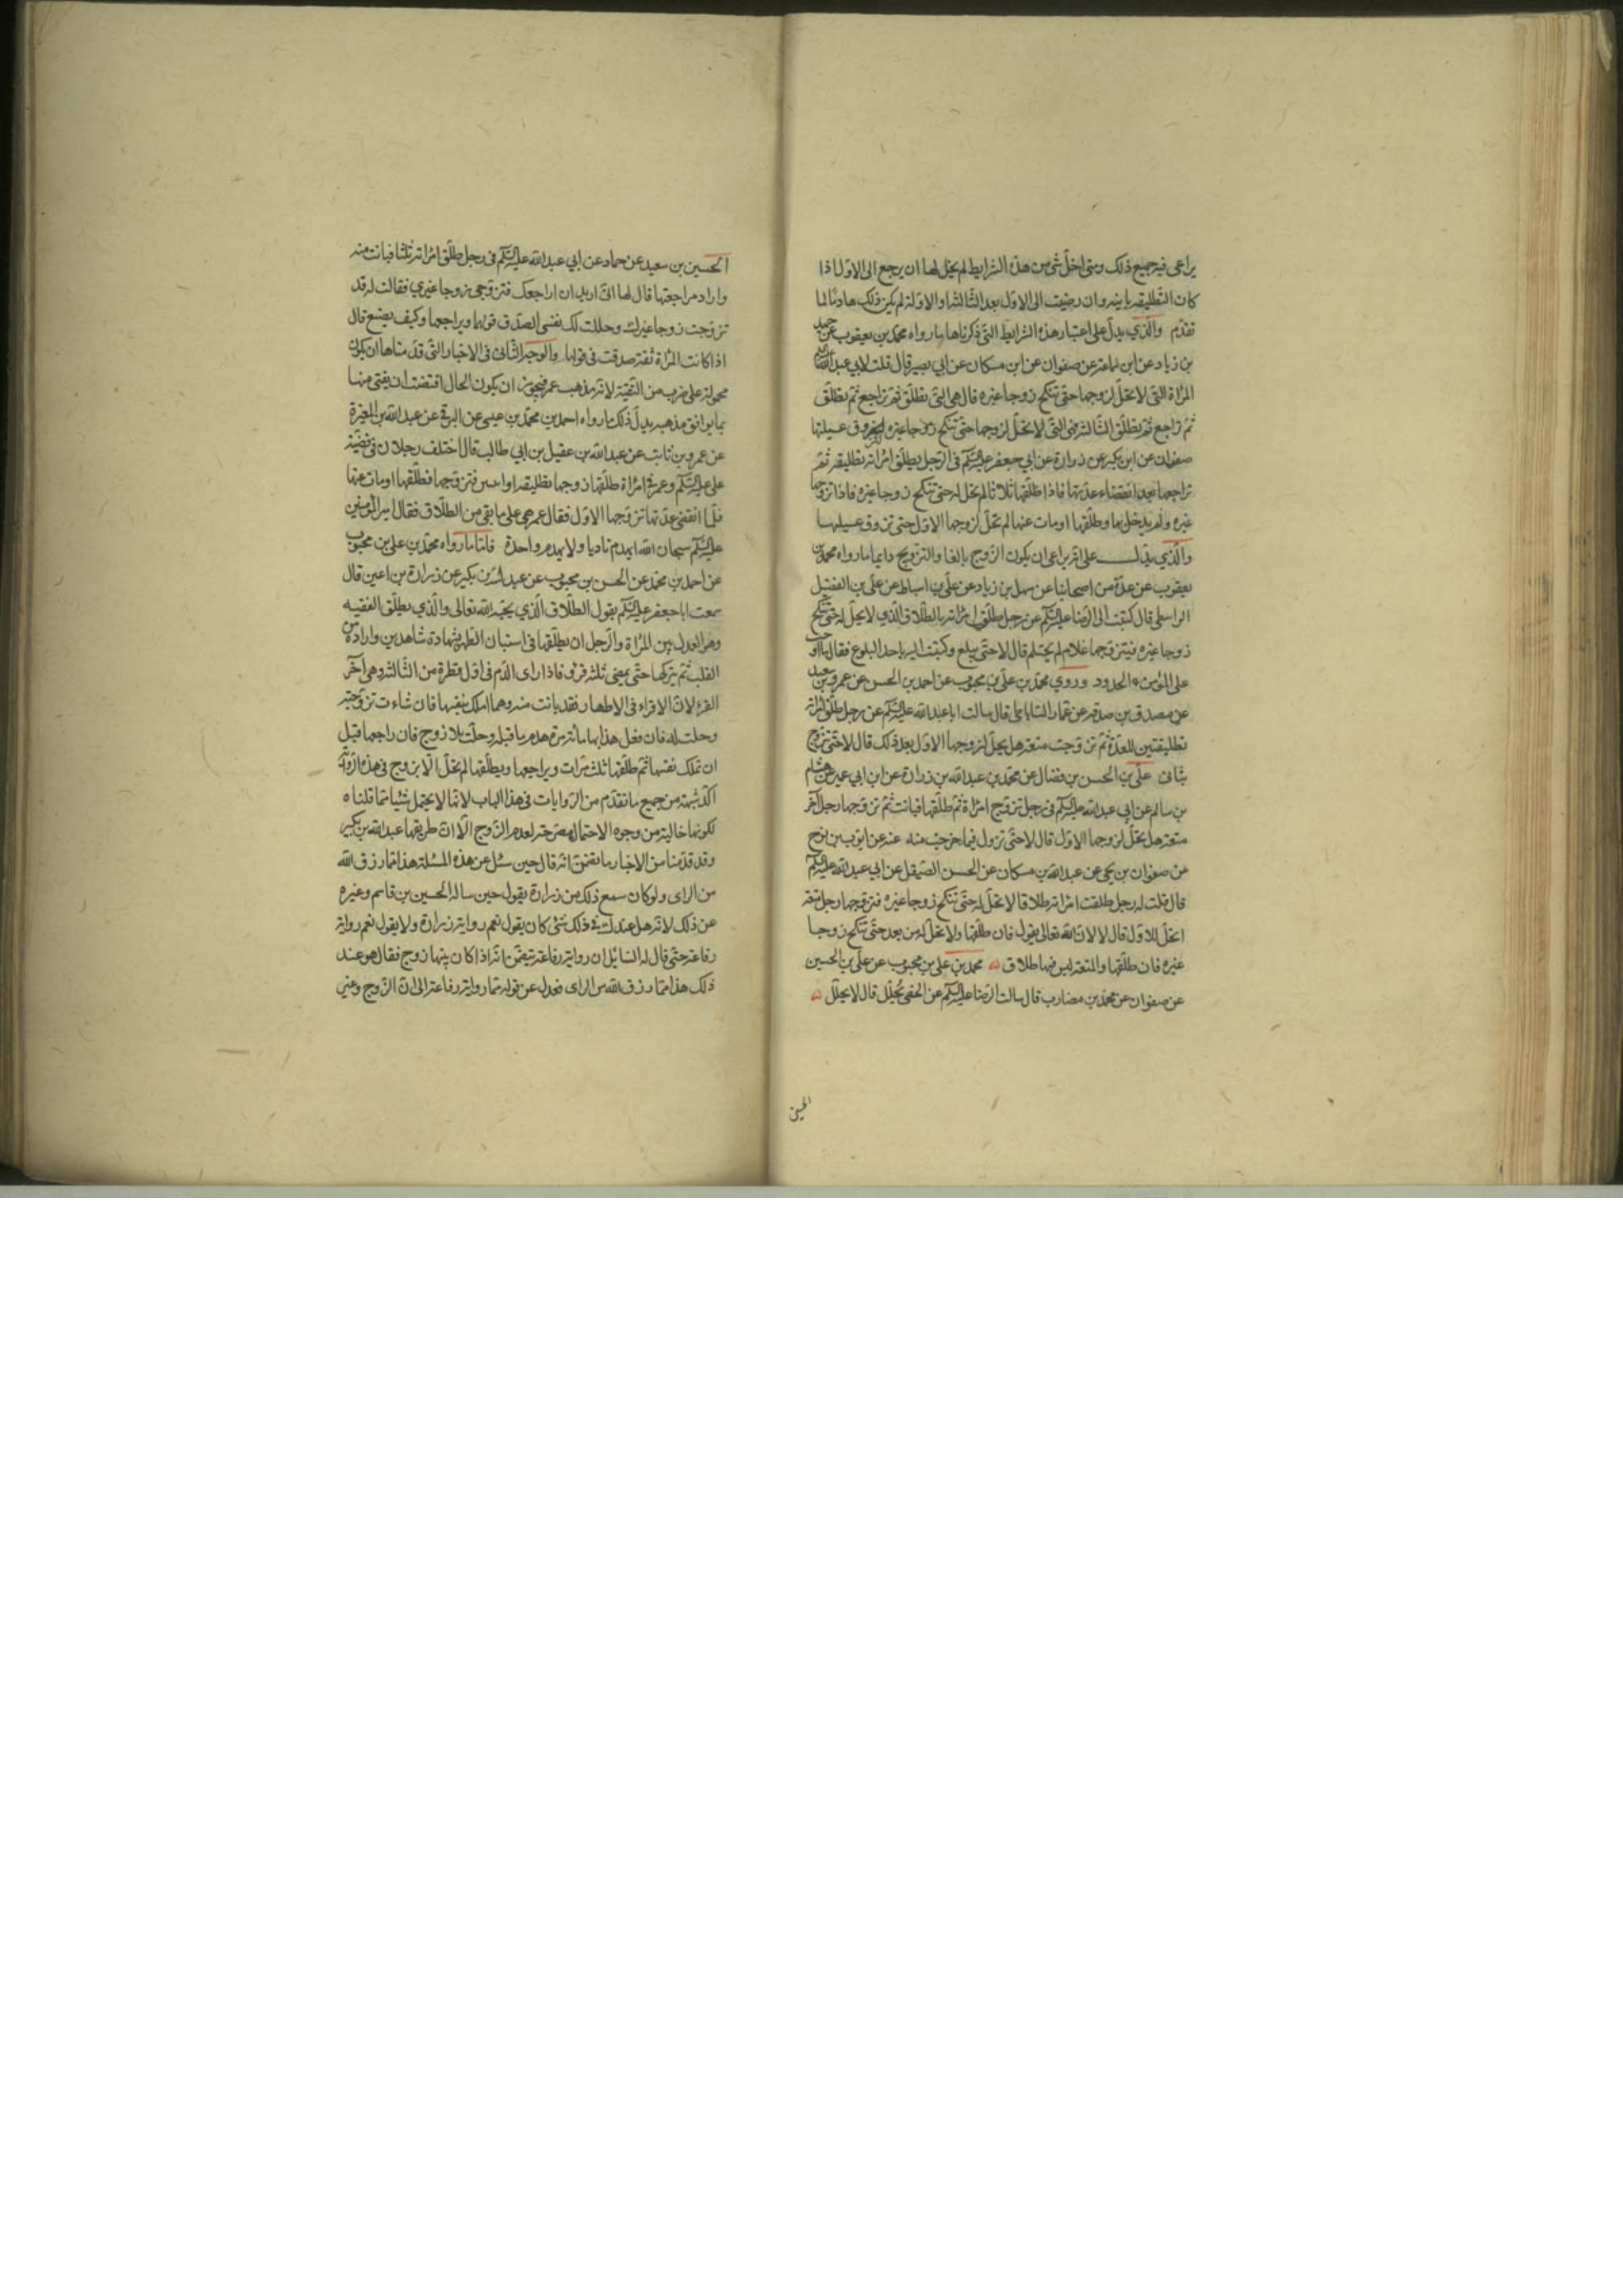 يراعى فيه جميع ذلك ومتى اخل شئ من هذه الشرايط لم يحل لها ان يرجع الى الاول اذا
كان التطليقه باينه وان رجعت الى الاول بعد الثالثه او الاوله لم يكن ذلك هادما لما
تقدم والذي يدل على اعتبار هذه الشرايط التي ذكرناها ما رواه محمد بن يعقوب عن حميد
بن زياد عن ابن سماعه عن صفوان عن ابن مسكان عن ابي بصير قال قلت لابي عبد الله عليه السلام
المراة التي لا تحل لزوجها حتى تنكح زوجا غيره قال هي التي تطلق ثم تراجع ثم تطلق
ثم تراجع ثم تطلق الثالثه فهى التي لا تحل لزوجها حتى تنكح زوجا غيره ويذوق عسيلتها
صفوان عن ابن بكير عن زرارة عن ابي جعفر عليه السلم فى الرجل يطلق امراته تطليقه ثم
تراجعها بعد انقضاء عدتها فاذا طلقها ثلاثا لم تحل له حتى تنكح زوجا غيره فاذا تزوجها
غيره ولم يدخل بها وطلقها او مات عنها لم تحل لزوجها الاول حتى تذوق عسيلها
والذي يدل على انه يراعى ان يكون الزوج بالغا والتزويج دايما ما رواه محمد بن
يعقوب عن عدة من اصحابنا عن سهل بن زياد عن علي بن اسباط عن علي بن الفضل
الواسطى قال كتبت الى الرضا عليه السلم عن رجل طلق امراته بالطلاق الذي لا يحل له حتى تنكح
زوجا غيره فيتزوجها غلام لم يحتلم قال لا حتى يبلغ وكتبت اليه ما حد البلوغ فقال ما اوجب
على المؤمن الحدود وروي محمد بن علي بن محبوب عن احمد بن الحسن عن عمرو بن سعيد
عن مصدق بن صدقه عن عمار الساباطى قال سالت ابا عبد الله عليه السلم عن رجل طلق امراته
تطليقتين للعدة ثم تزوجت متعة هل يحل لزوجها الاول بعد ذلك قال لا حتى تزوج
بتاتا علي بن الحسن بن فضال عن محمد بن عبد الله بن زرارة عن ابن ابي عمير عن هشام
بن سالم عن ابي عبد الله عليه السلم في رجل تزوج امراة ثم طلقها فبانت ثم تزوجها رجل آخر
متعة هل تحل لزوجها الاول قال لا حتى تزول فيما خرجت منه عنه عن ايوب بن نوح
عن صفوان بن يحيى عن عبد الله بن مسكان عن الحسن الصيقل عن ابي عبد الله عليه السلم
قال قلت له رجل طلقت امراته طلاقا لا تحل له حتى تنكح زوجا غيره فتزوجها رجل متعة
اتحل للاول قال لا لان الله تعالى يقول فان طلقها ولا تحل له من بعد حتى تنكح زوجا
غيره فان طلقها والمتعة ليس فيها طلاق محمد بن علي بن محبوب عن علي بن الحسين
عن صفوان عن محمد بن مضارب قال سالت الرضا عليه السلم عن الخصى يحلل قال لا يحلل
الحسين
الحسين بن سعيد عن حماد عن ابي عبد الله عليه السلم فى رجل طلق امراته ثلثا فبانت منه
واراد مراجعتها قال لها انى اريد ان اراجعك فتزوجى زوجا غيري فقالت له قد
تزوجت زوجا غيرك وحللت لك نفسى الصدق قولها ويراجعها وكيف يصنع قال
اذا كانت المراة ثقة صدقت فى قولها والوجه الثانى فى الاخبار التي قدمناها ان يكون
محمولة على ضرب من التقية لانه مذهب عمر فيجوز ان يكون الحال اقتضت ان يفتى فيها
بما يوافق مذهبه يدل ذلك ما رواه احمد بن محمد بن عيسى عن البرقي عن عبد الله بن المغيرة
عن عمرو بن ثابت عن عبد الله بن عقيل بن ابي طالب قال اختلف رجلان فى قضية
علي عليه السلم وعمر في امراة طلقها زوجها تطليقه او اثنين فتزوجها فطلقها او مات عنها
فلما انقضى عدتها تزوجها الاول فقال عمر هي على ما بقى من الطلاق فقال امير المؤمنين
عليه السلم سبحان الله ايهدم ولا يهدم واحدة فاما ما رواه محمد بن علي بن محبوب
عن احمد بن محمد عن الحسن بن محبوب عن عبد الله بن بكير عن زرارة بن اعين قال
سمعت ابا جعفر عليه السلم يقول الطلاق الذي يحبه الله تعالى والذي يطلق الفقيه
وهو العدل بين المراة والرجل ان يطلقها فى استبان الطهر بشهادة شاهدين وارادة من
القلب ثم يتركها حتى يمضى ثلثة قروء فاذا راى الدم فى اول قطرة من الثالثه وهى آخر
القرء لان الاقراء فى الاطهار فقد بانت منه وهى املك بنفسها فان شاءت تزوجته
وحلت له فان فعل هذا بها مائة مرة هدم ما قبله وحلت بلا زوج فان راجعها قبل
ان تملك نفسها ثم طلقها ثلث مرات ويراجعها ويطلقها لم تحل الا بزوج فى هذه الرواية
اكد شبهة من جميع ما تقدم من الروايات فى هذا الباب لانها لا يحتمل شيئا مما قلناه
لكونها خالية من وجوه الاحتمال مصرحة لعدم الزوج الا ان طريقها عبد الله بن بكير
وقد قدمنا من الاخبار ما يتضمن انه قال حين سئل عن هذه المسئلة هذا مما رزق الله
من الراى ولو كان سمع ذلك من زرارة يقول حين ساله الحسين بن قاسم وغيره
عن ذلك لانه هل عندك في ذلك شئ كان يقول نعم رواية زرارة ولا يقول نعم رواية
رفاعة حتى قال له السائل ان رواية رفاعة يتضمن انه اذا كان بينها زوج فقال هو عند
ذلك هذا مما رزق الله من الراى فعدل عن قوله مما رواية رفاعة الى ان الزوج وغير